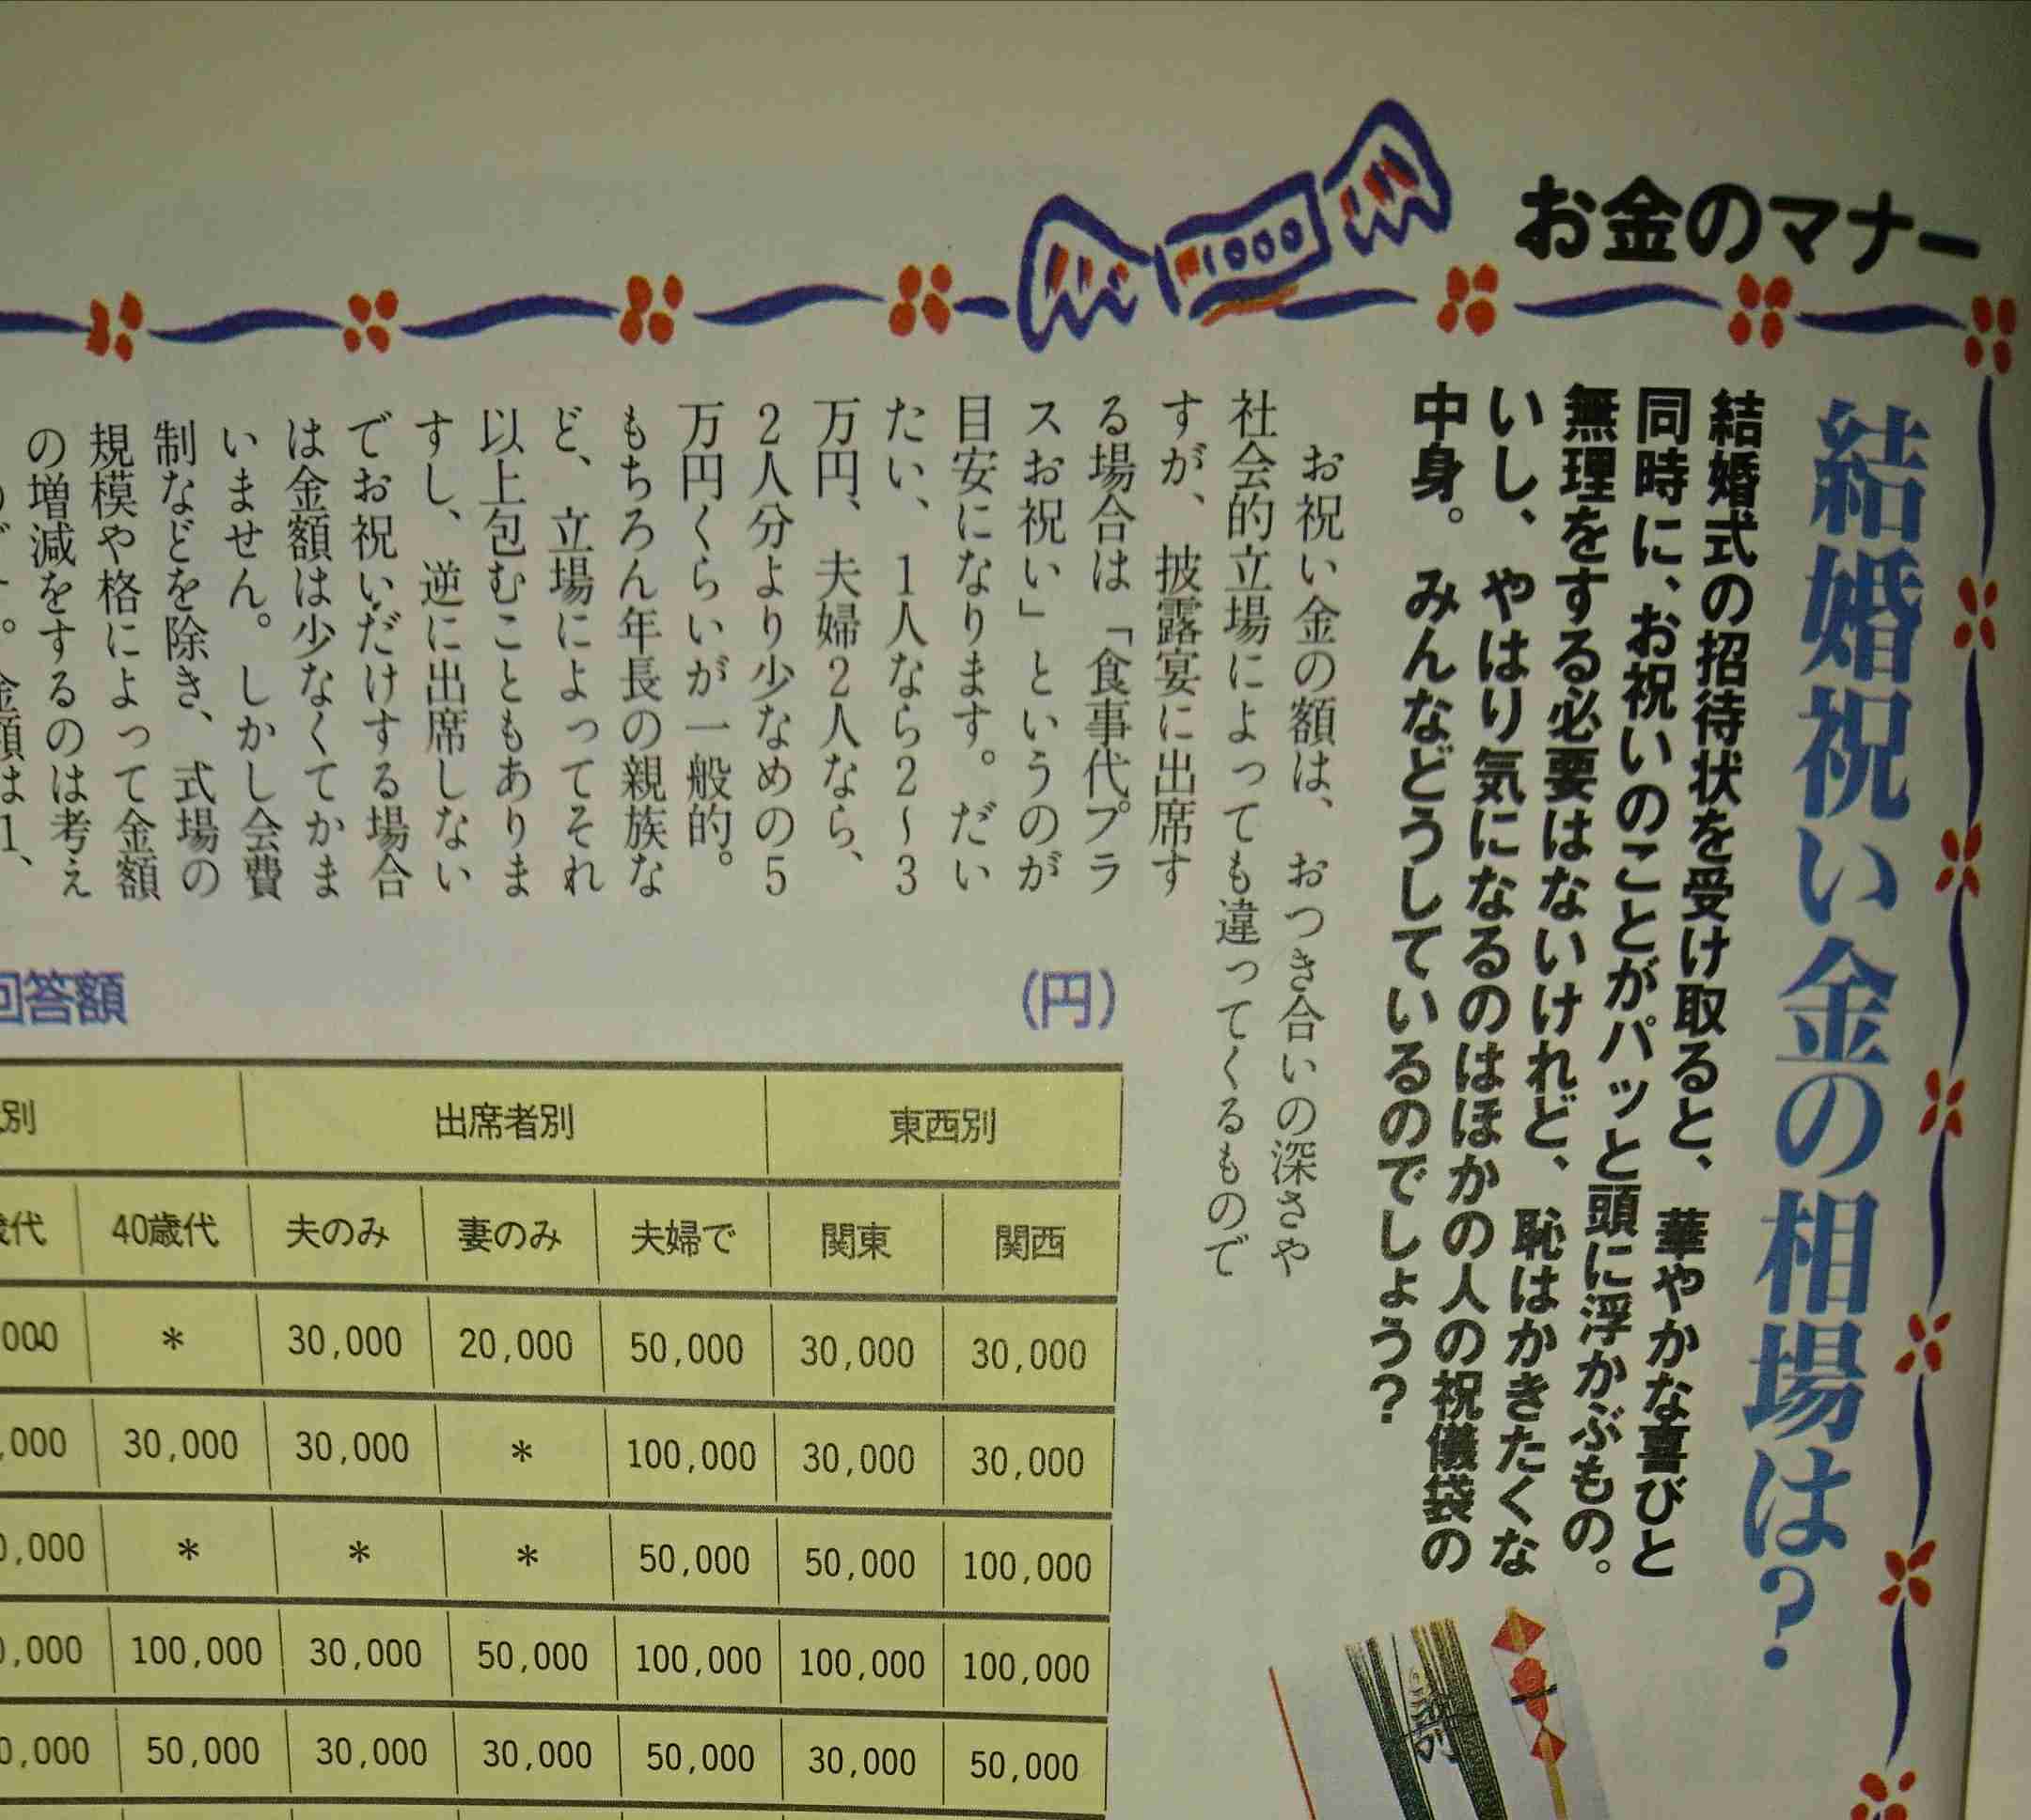 お金のマナー
1000
結婚祝い金の相場は?
結婚式の招待状を受け取ると、華やかな喜びと
同時に、お祝いのことがパッと頭に浮かぶもの。
無理をする必要はないけれど、恥はかきたくな
いし、やはり気になるのはほかの人の祝儀袋の
中身。みんなどうしているのでしょう?
お祝い金の額は、おつき合いの深さや
社会的立場によっても違ってくるもので
すが、披露宴に出席す
る場合は「食事代プラ
スお祝い」というのが
目安になります。だい
たい、1人なら2〜3
万円、夫婦2人なら、
2人分より少なめの5
万円くらいが一般的。
もちろん年長の親族な
ど、立場によってそれ
以上包むこともありま
すし、逆に出席しない
でお祝いだけする場合
は金額は少なくてかま
いません。しかし会費
制などを除き、式場の
規模や格によって金額
の増減をするのは考え
。金額は1、
回答額
(円)
別 出席者別 東西別
歳代 40歳代 夫のみ 妻のみ 夫婦で 関東 関西
000 * 30,000 20,000 50,000 30,000 30,000
,000 30,000 30,000 * 100,000 30,000 30,000
0,000 * * * 50,000 50,000 100,000
0,000 100,000 30,000 50,000 100,000 100,000 100,000
0,000 50,000 30,000 30,000 50,000 30,000 50,000
寿